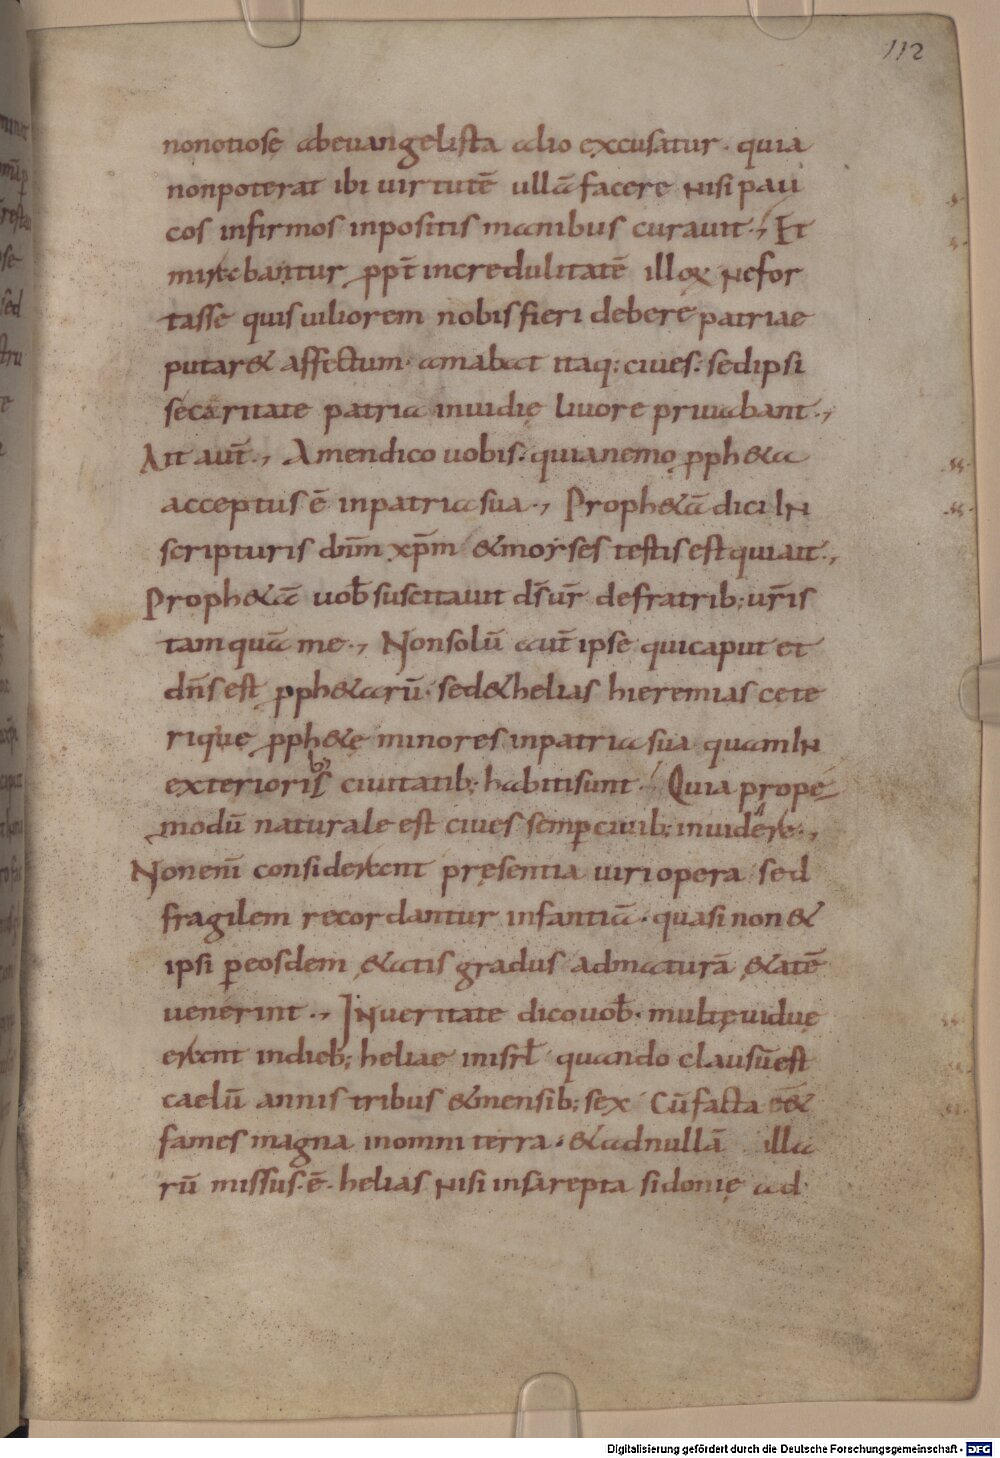 112
nonotiose abeuangelista alio excusatur · quia
nonpoterat ibi uirtutē ullā facere nisi pau
cos infirmos inpositis manibus curauit ., Et
mirabantur ꝓpt̄ incredulitatē illoꝝ nefor
tasse quis uiliorem nobis fieri debere patriae
putar& affectum · amabat itaq: ciues : sed ipsi
se caritate patria inuidię liuore priuabant .,
Ait aut̄ ., Amen dico uobis · quia nemo ꝓph&a
acceptus ē inpatria sua ., Proph&ā dici in
scripturis dn̄m xp̄m &moyses testis est quiait .,
Proph&ā uob̄ suscitauit ds̄ ur̄ defratrib; ur̄is
tamquā me ., Nonsolū aut̄ ipse quicaput et
dn̄s est ꝓph&arū · sed&helias hieremias cete
rique ꝓph&ę minores inpatria sua quam in
exteriorib; ciuitatib; habiti sunt · Quia prope
modū naturale est ciues semꝑ ciuib; inuidere .,
Nonenī considerant pręsentia uiri opera sed
fragilem recordantur infantiā · quasi non &
ipsi ꝑeosdem &atis gradus admaturā &atē
uenerint ., Inueritate dico uob̄ · multę uiduę
erant indieb; heliae inisrl̄ quando clausū est
caelū annis tribus &mensib; sex Cū facta eē&
fames magna inomni terra · &adnullā illa
rū missus · ē · helias nisi insarepta sidonię ad
Digitalisierung gefördert durch die Deutsche Forschungsgemeinschaft - DFG